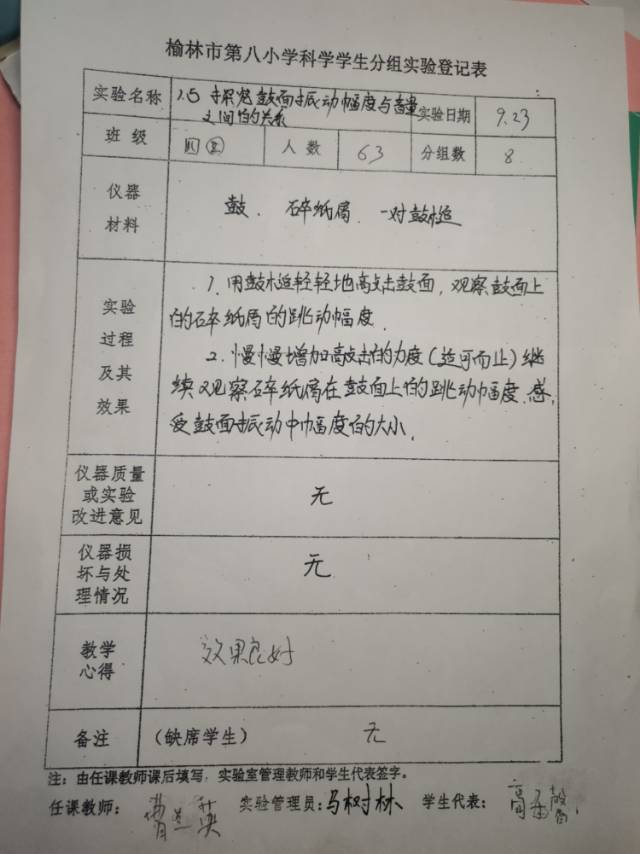 榆林市第八小学科学学生分组实验登记表
实验名称 1.5 探究鼓面振动幅度与音量之间的关系 实验日期 9.23
班级 四 人数 63 分组数 8
仪器材料 鼓、碎纸屑、一对鼓槌
实验过程及其效果
1、用鼓槌轻轻地敲击鼓面,观察鼓面上
的碎纸屑的跳动幅度.
2、慢慢增加敲击的力度(适可而止)继
续观察碎纸屑在鼓面上的跳动幅度.感
受鼓面振动中幅度的大小.
仪器质量或实验改进意见 无
仪器损坏与处理情况 无
教学心得 效果良好
备注 (缺席学生) 无
注:由任课教师课后填写,实验室管理教师和学生代表签字。
任课教师: 实验管理员:马树林 学生代表: